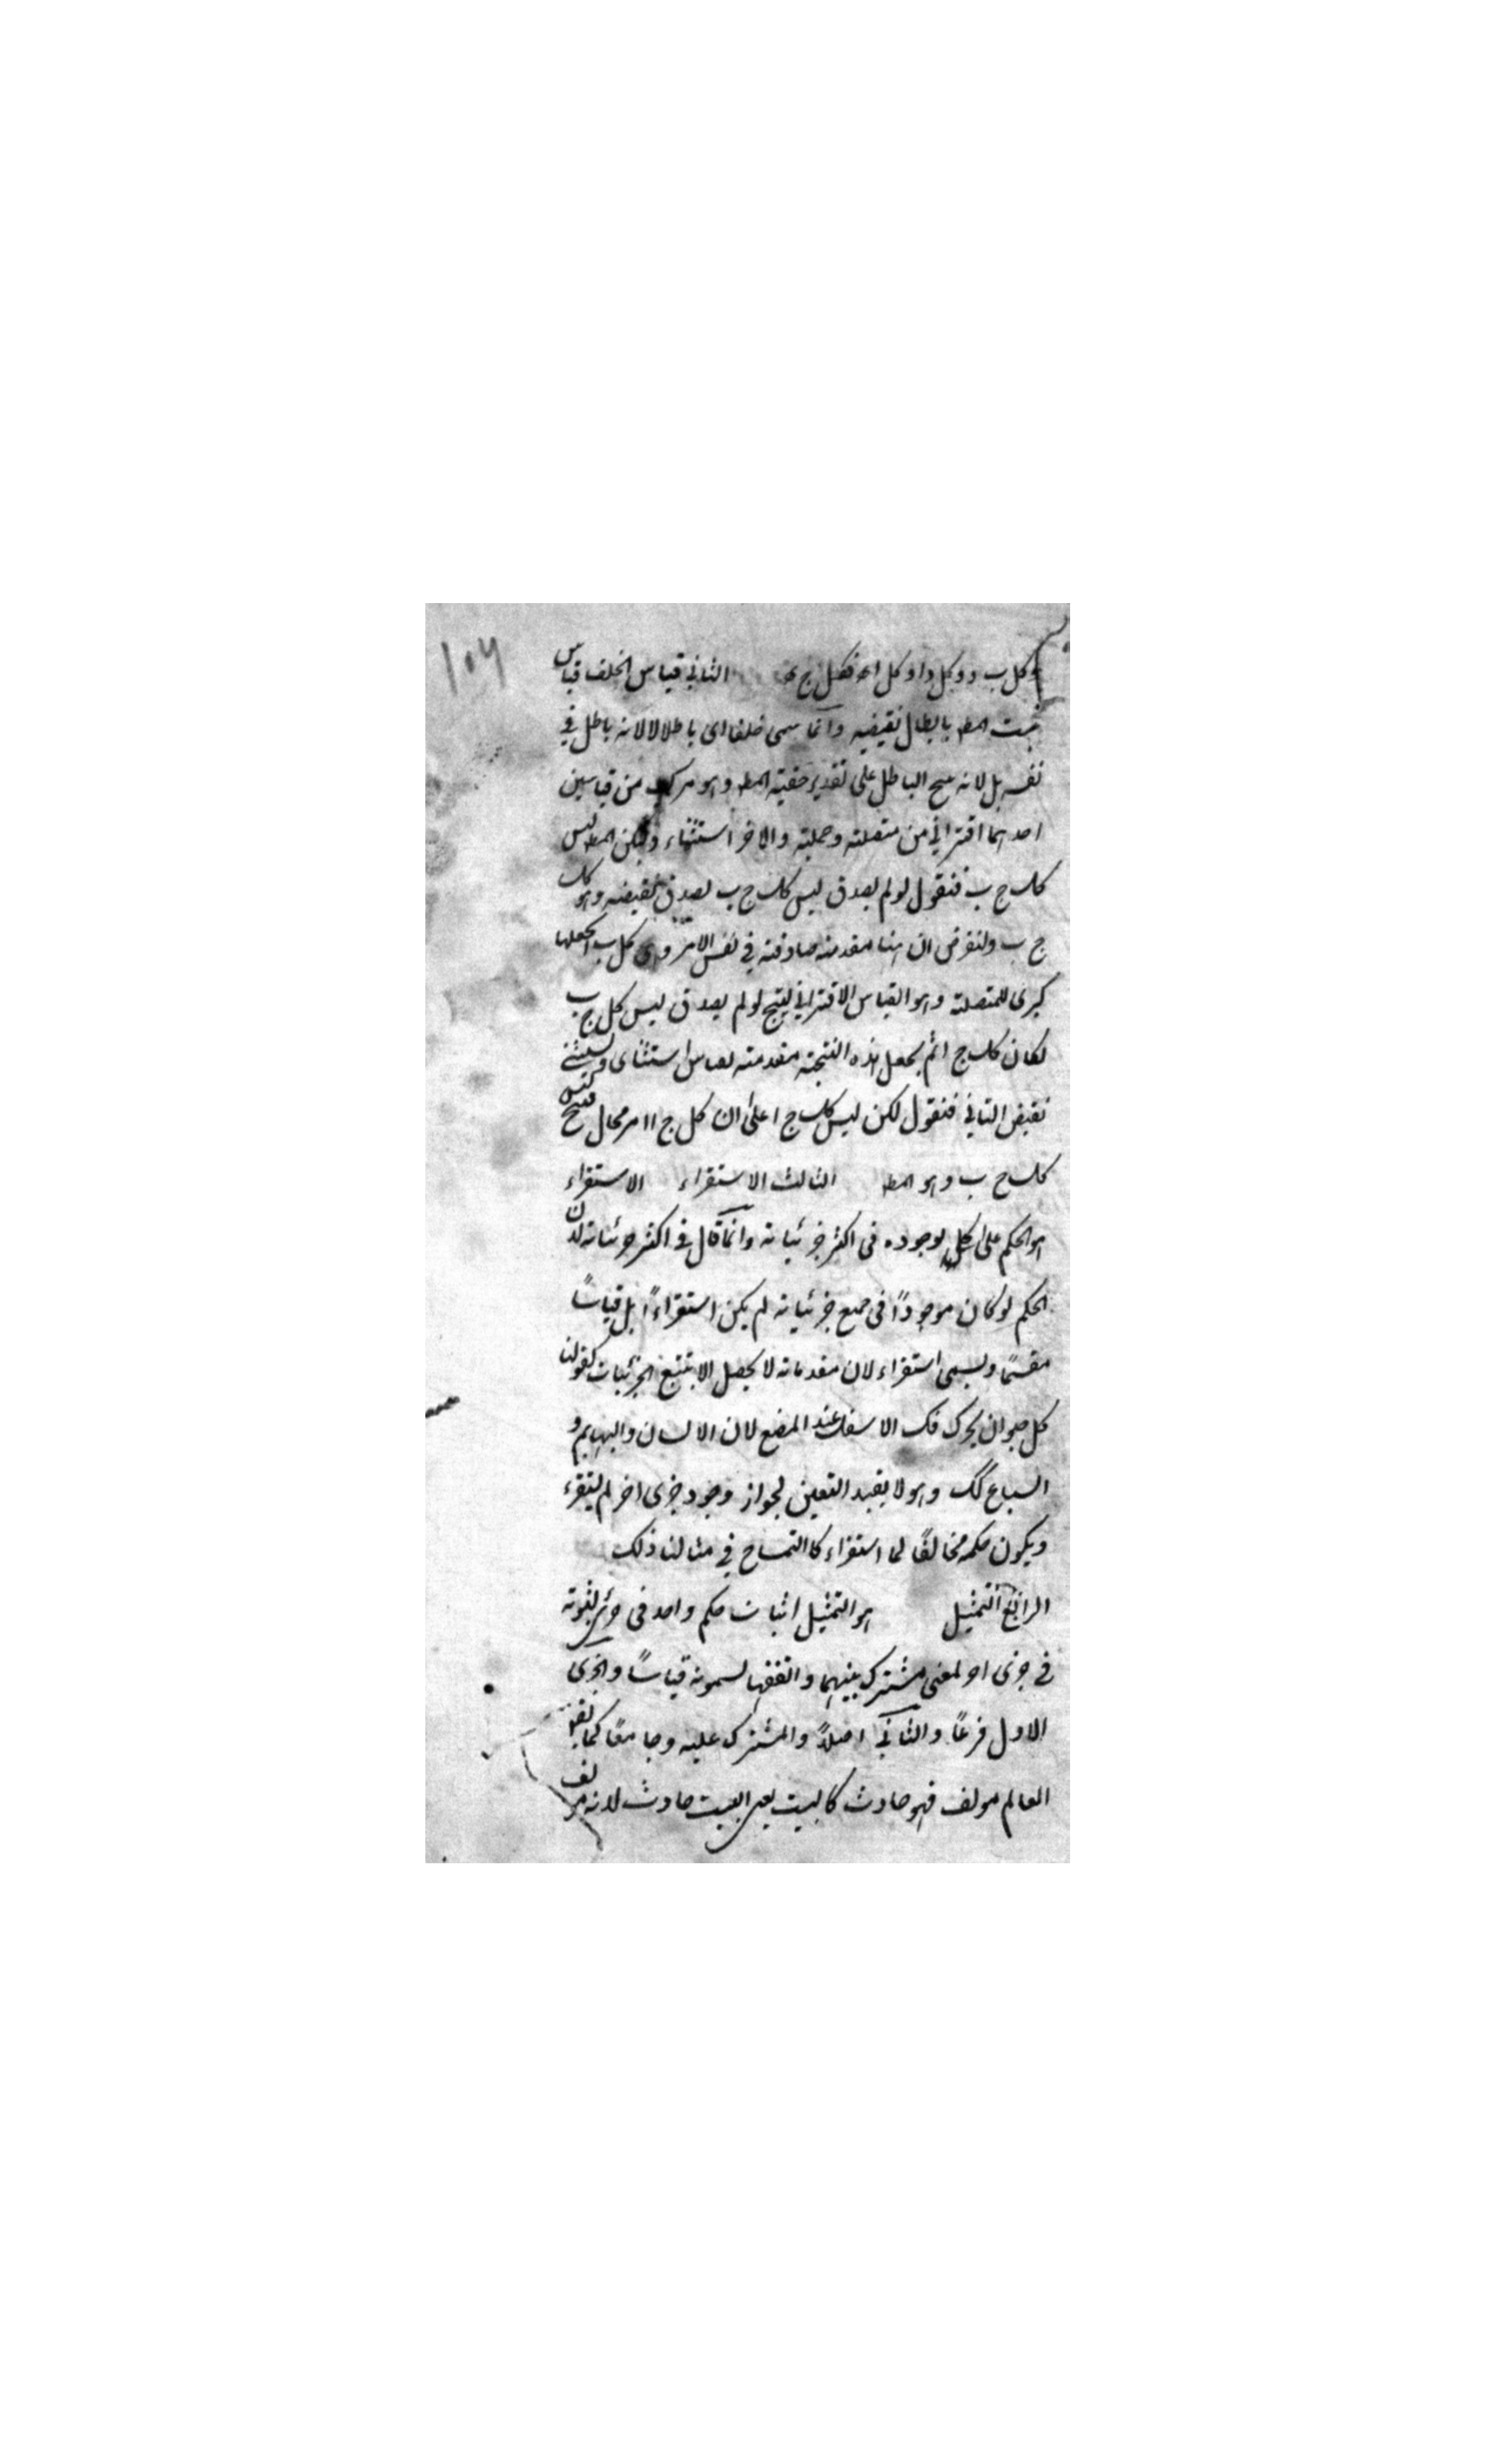 ١٠٦
وكل ب د وكل د ا وكل ا ه فكل ج ه الثاني قياس الخلف قياس
يثبت المط بابطال نقيضه وانما سمى خلفا اى باطلا لا لانه باطل في
نفسه بل لانه ينتج الباطل على تقدير حقية المط وهو مركب من قياسين
احدهما اقتراني من متصلته وحملية والاخر استثناء وليكن المط ليس
كل ج ب فنقول لو لم يصدق ليس كل ج ب لصدق نقيضه وهو كل
ج ب ولنفرض ان هنا مقدمته صادقته في نفس الامر وهى كل ب ا نجعلها
كبرى للمتصلته وهو القياس الاقتراني ينتج لو لم يصدق ليس كل ج ب
لكان كل ج ا ثم يجعل هذه النتيجته مقدمته لقياس استثناى ويستثنے
نقيض التالي فنقول لكن ليس كل ج ا على ان كل ج ا امر محال فينتج ليس
كل ج ب وهو المط الثالث الاستقراء الاستقراء
هو الحكم على كلى لوجوده فى اكثر جزئياته وانما قال في اكثر جزئياته لان
الحكم لو كان موجودًا فى جميع جزئياته لم يكن استقراءً بل قياسًا
مقسمًا ويسمى استقراء لان مقدماته لا يحصل الا بتتبع الجزئيات كقولنا
كل حيوان يحرك فك الاسفل عند المضغ لان الانسان والبهايم و
السباع كك وهو لا يفيد التعين لجواز وجود جزى اخر لم يستقرء
ويكون حكمه مخالفًا لما استقراء كا التمساح في مثالنا ذلك
الرابع التمثيل هو التمثيل اثبات حكم واحد فى جزئى لثبوته
في جزى اخر لمعنى مشترك بينهما والفقهاء يسمونه قياسًا والجزى
الاول فرعًا والثاني اصلاً والمشترك عليه وجامعًا كما يقو
العالم مولف فهو حادث كالبيت يعنى البيت حادث لانه مولف